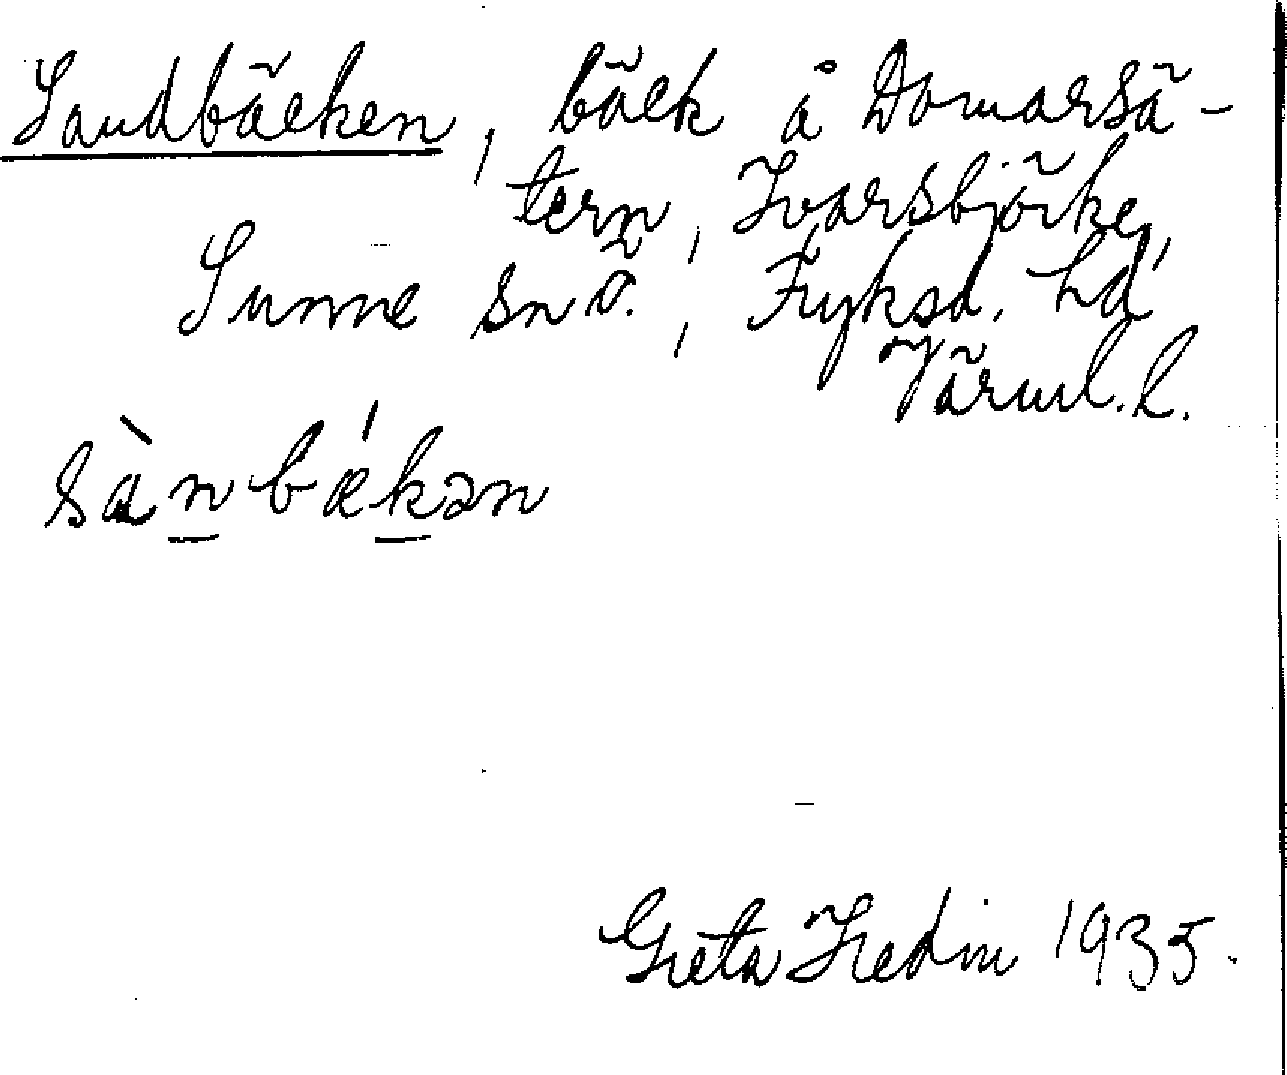 Sandbäcken, bäck å Domarsä-
tern, Ivarsbjörke,
Sunne sn Ö., Fryksd. hd
Värml. l.
sànbǽkən
Greta Hedin 1935.